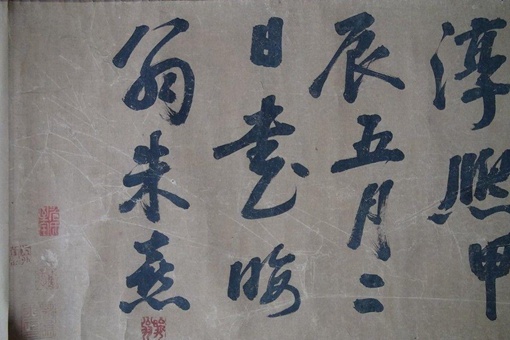 淳熙甲
辰五月二
日書晦
翁朱熹